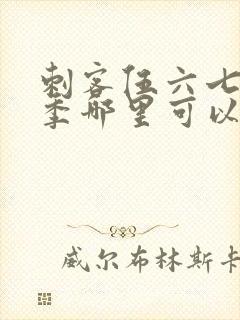 刺客伍六七
季哪里可以
威尔布林斯卡